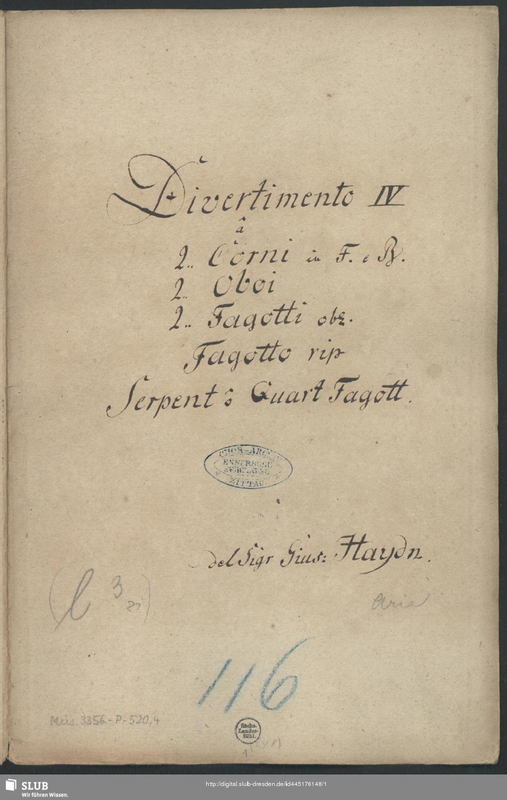 Divertimento IV
â
2.. Corni in F. e B.
2.. Oboi
2.. Fagotti obl.
Fagotto rip
Serpent ô Quart Fagott.
ZITTAU
del Sigr Gius: Haydn.
(l 3
Aria
116
Mus. 3356-P-520,4
Sächs.
Landes-
Bibl.
SLUB
Wir führen Wissen.
http://digital.slub-dresden.de/id445176148/1